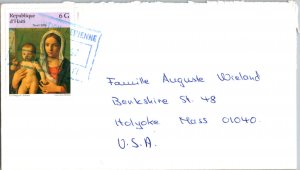 République
d'Haïti
6 G
TIENNE
Famille Auguste Wieland
Benkshire St. 48
Holyoke Mass 01040.
U.S.A.